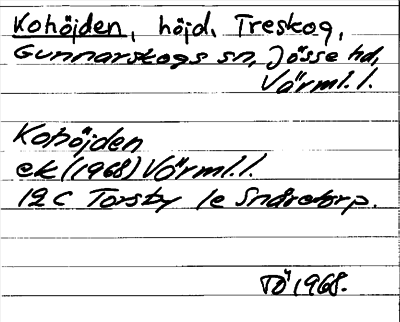 Kohöjden, höjd, Treskog,
Gunnarskogs sn, Jösse hd,
Värml. l.
Kohöjden
ek (1968) Värml. l.
12 C Torsby 1e
Tö 1968.